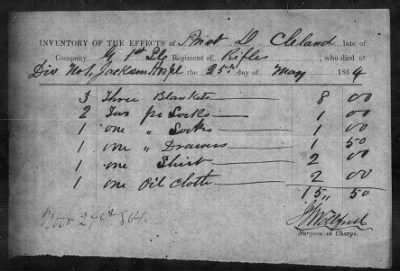 INVENTORY OF THE EFFECTS of Privt D. Cleland late of
Company G 1st Regiment of Rifles who died at
Div No 1, Jackson Hospl the 25th day of May 1864
3 Three Blankets 8 00
2 Two pr Socks 1 00
1 one " Socks 1 00
1 one " Drawers 1 50
1 one Shirt 2 00
1 one Oil Cloth 2 00
15 " 50
Surgeon in Charge.